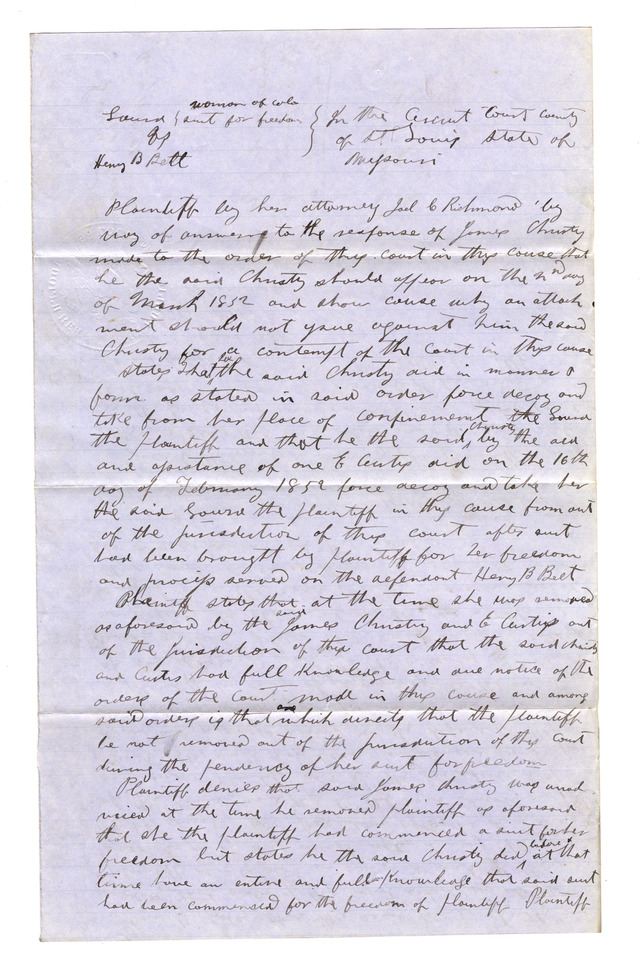 woman of colo
Laura } suit for freedom } In the Circuit Court County
vs of St. Louis State of
Henry B Belt Missouri
Plaintiff by her attorney Joel C Richmond by
way of answer to the response of James Christy
made to the order of this court in this cause that
he the said Christy should appear on the day
of March 1852 and show cause why an attach
ment should not issue against him the said
Christy for a contempt of the Court in this cause
states that the said Christy did in manner &
form as stated in said order force decoy and
take from her place of confinement the
the plaintiff and that he the said Christy by the aid
and assistance of one E Curtis did on the 16th
day of February 1852 force decoy and take her
the said the plaintiff in this cause from out
of the jurisdiction of this court after suit
had been brought by plaintiff for her freedom
and process served on the defendant Henry B Belt
Plaintiff states that at the time she was removed
as aforesaid by the said James Christy and E Curtis out
of the jurisdiction of this court that the said Christy
and Curtis had full Knowledge and due notice of the
orders of the Court made in this cause and among
said orders is that one which directs that the plaintiff
be not removed out of the jurisdiction of this Court
during the pendency of her suit for freedom
Plaintiff denies that said James Christy was unad
vised at the time he removed plaintiff as aforesaid
that she the plaintiff had commenced a suit for her
freedom but states he the said Christy did at that
time have an entire and full Knowledge that said suit
had been commenced for the freedom of plaintiff Plaintiff